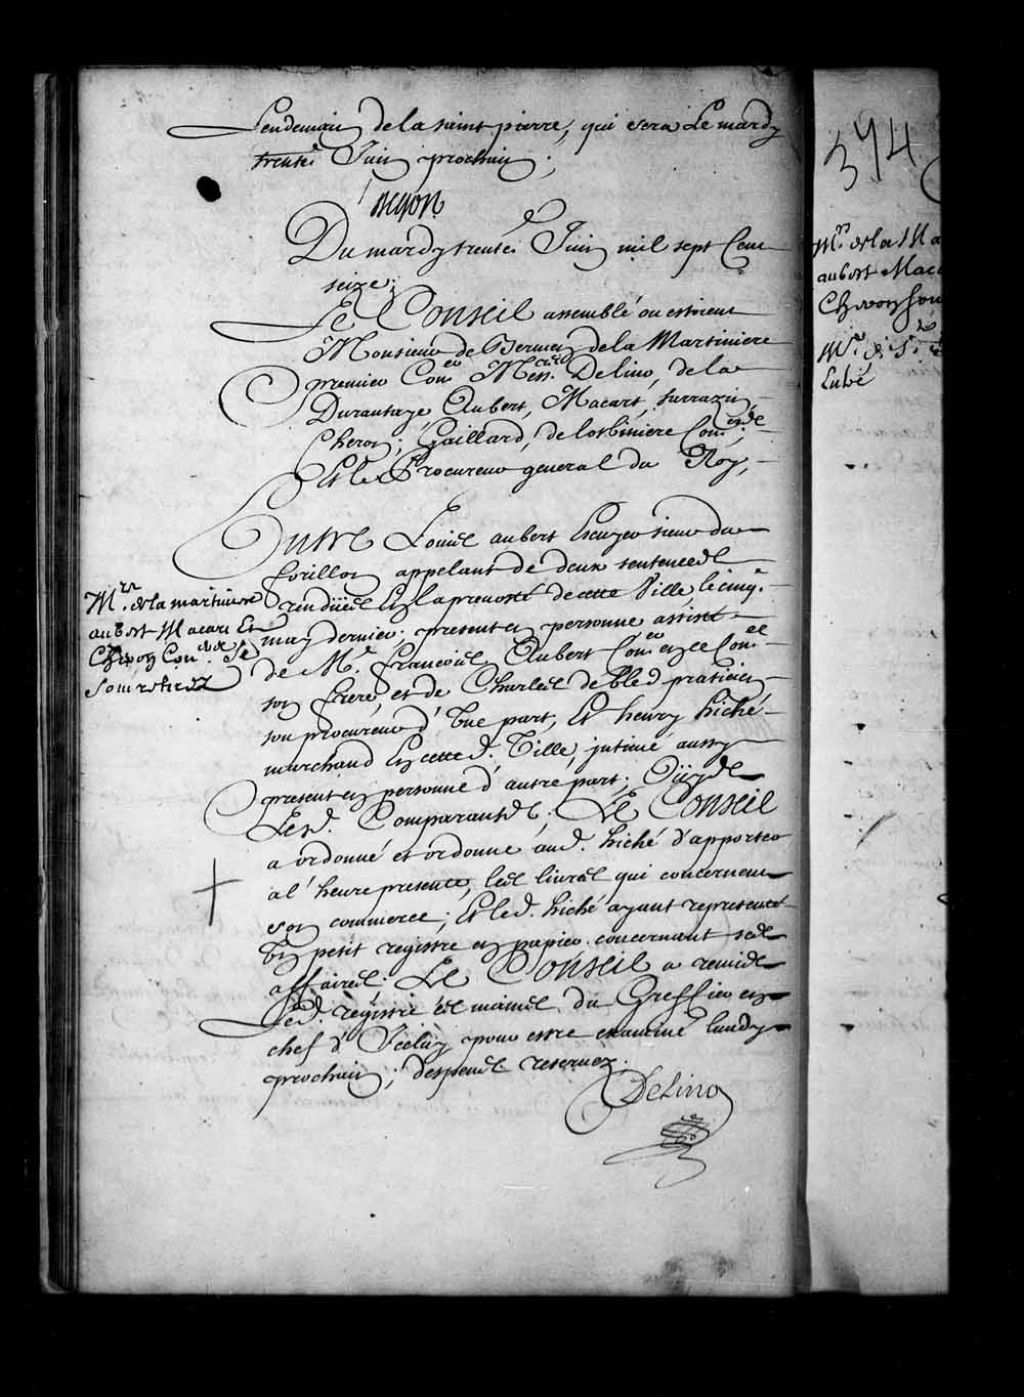 Lendemain de la saint pierre, qui sera Le mardy
trente.e Juin prochain;
Begon
Du mardy trente.e Juin mil sept Cens
seize;
Le Conseil assemblé ou estoient
Monsieur de Bermen de la Martiniere
premier Con.er Mess. Delino, de la
Durantaye, Aubert, Macart, Sarrazin,
Cheron, Gaillard, de Lotbiniere Con.ers;
Et le Procureur general du Roy,
Entre Louis aubert Escuyer sieur du
forillon appelant de deux sentences
rendües En la prevosté de cette Ville le cinq.e
may dernier; present en personne assisté
de M.e francois Aubert Con.er en ce Con.el
son frere, et de Charles
praticien
son procureur d'Une part, Et henry hiché
marchand En cette d. Ville, intimé aussy
present en personne d'autre part; Oüys
Les d. Comparants; Le Conseil
a ordonné et ordonne aud. hiché d'apporter
a l'heure presente, les livres qui concernent
son commerce; Et led. hiché ayant representé
Un petit registre en papier concernant ses
affaires; Le Conseil a remis
Led. registre es mains du Greffier en
chef d'Iceluy pour estre examiné lundy
prochain; despens reservez.
Delino
M.rs de la martiniere
aubert Macart Et
Cheron Con.ers Se
sont retirez
374
M.rs de la Ma
aubert Maca
Cheron